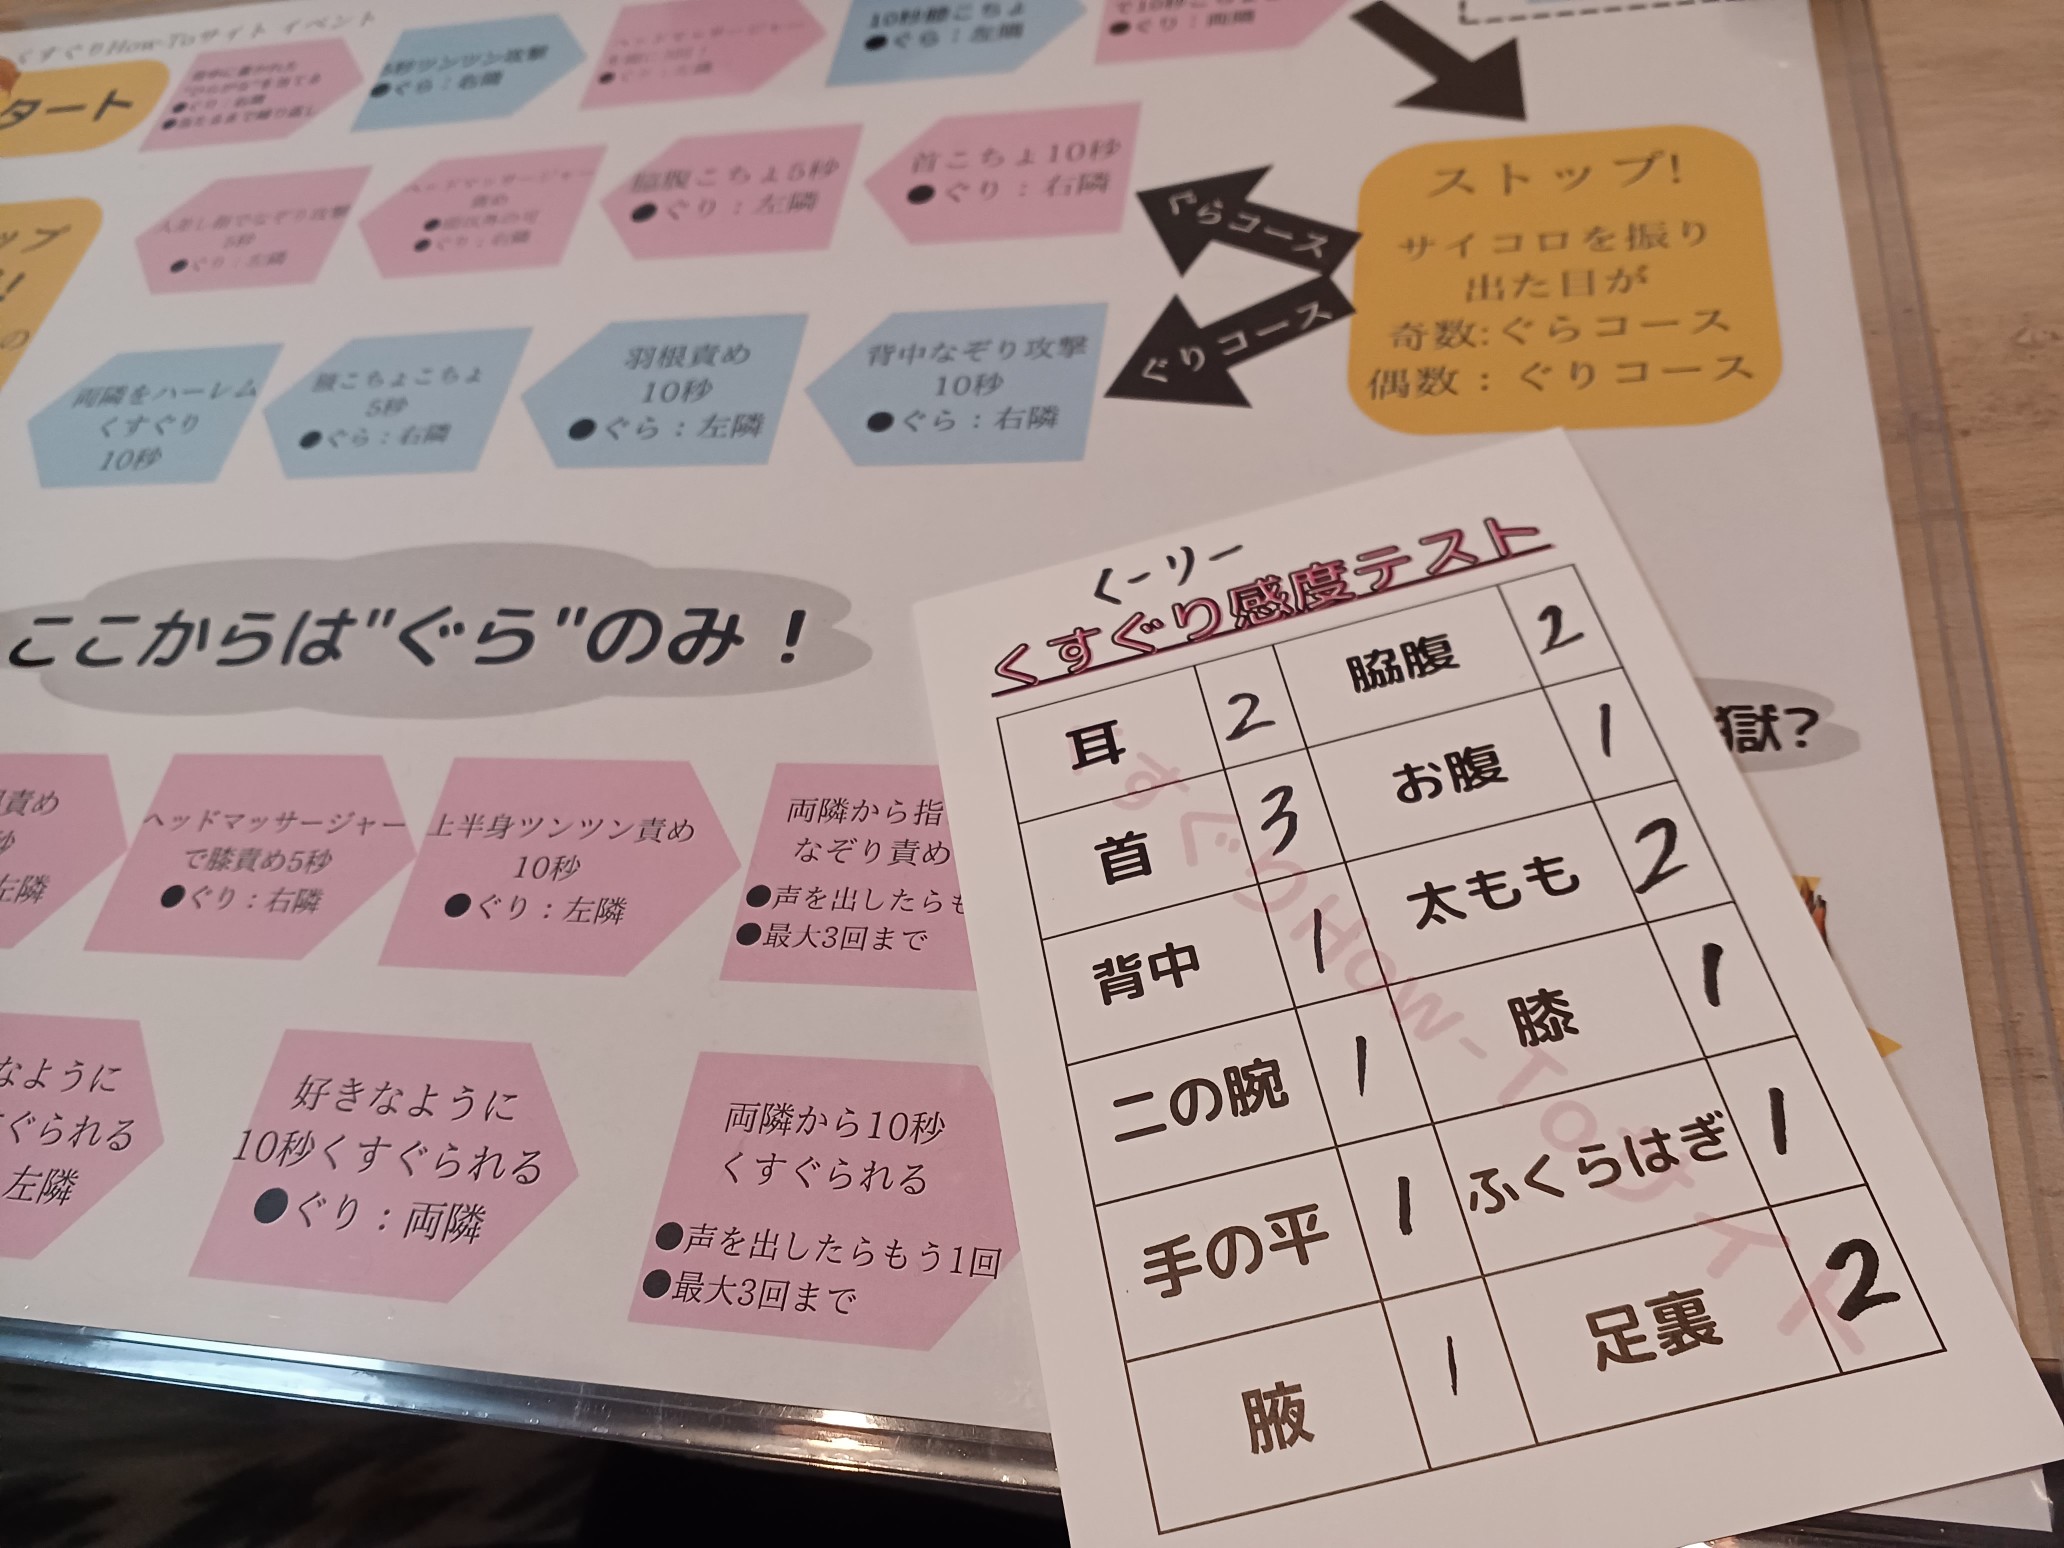 くすぐりHow-Toサイト イベント
タート
5秒ツンツン攻撃
●ぐら：右隣
●ぐら：左隣
●ぐり：両隣
ストップ!
サイコロを振り
出た目が
奇数:ぐらコース
偶数：ぐりコース
ぐらコース
ぐりコース
首こちょ10秒
●ぐり：右隣
脇腹こちょ5秒
●ぐり：左隣
ヘッドマッサージャー
責め
●ぐり：右隣
人差し指でなぞり攻撃
5秒
●ぐり：左隣
ップ
!
の
背中なぞり攻撃
10秒
●ぐら：右隣
羽根責め
10秒
●ぐら：左隣
こちょこちょ
5秒
●ぐら：右隣
両隣をハーレム
くすぐり
10秒
ここからは"ぐら"のみ！
獄?
責め
秒
左隣
ヘッドマッサージャー
で膝責め5秒
●ぐり：右隣
上半身ツンツン責め
10秒
●ぐり：左隣
両隣から指
なぞり責め
●声を出したらも
●最大3回まで
なように
ぐられる
左隣
好きなように
10秒くすぐられる
●ぐり：両隣
両隣から10秒
くすぐられる
●声を出したらもう1回
●最大3回まで
くーりー
くすぐり感度テスト
耳 2 脇腹 2
首 3 お腹 1
背中 1 太もも 2
二の腕 1 膝 1
手の平 1 ふくらはぎ 1
腋 1 足裏 2
くすぐりHow-Toサイト